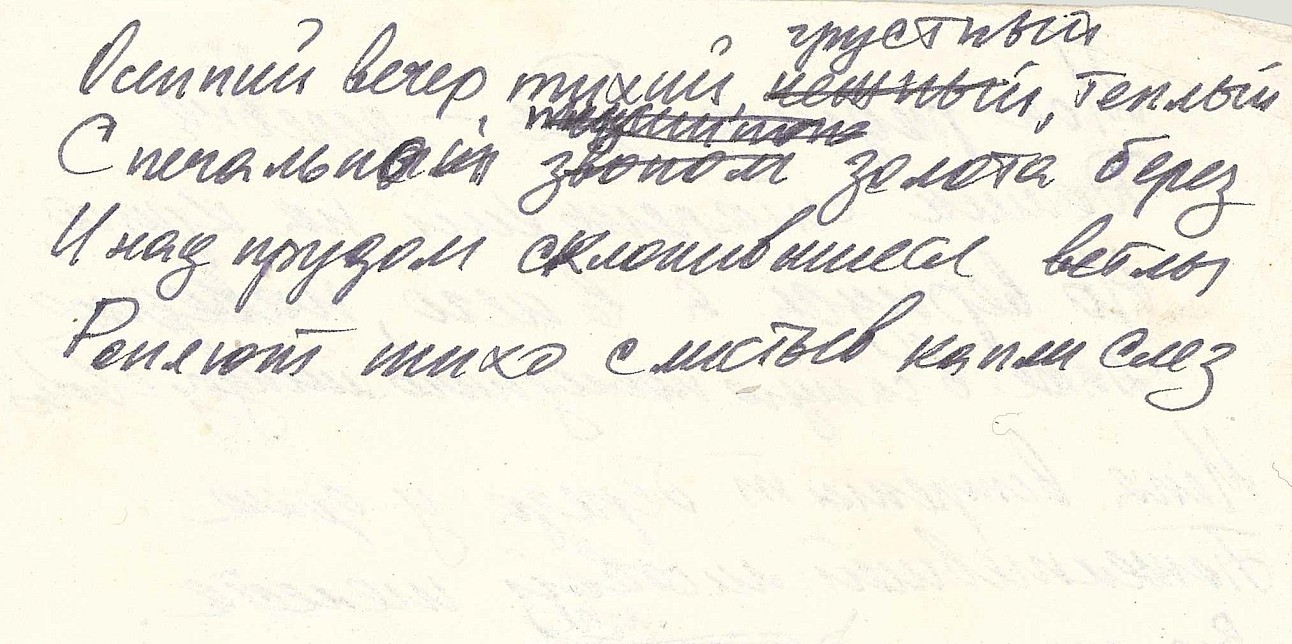 грустный
Осенний вечер, тихий, нежный, теплый
С печальной звоном золота берез
И над прудом склонившиеся ветлы
Роняют тихо с листьев капли слез